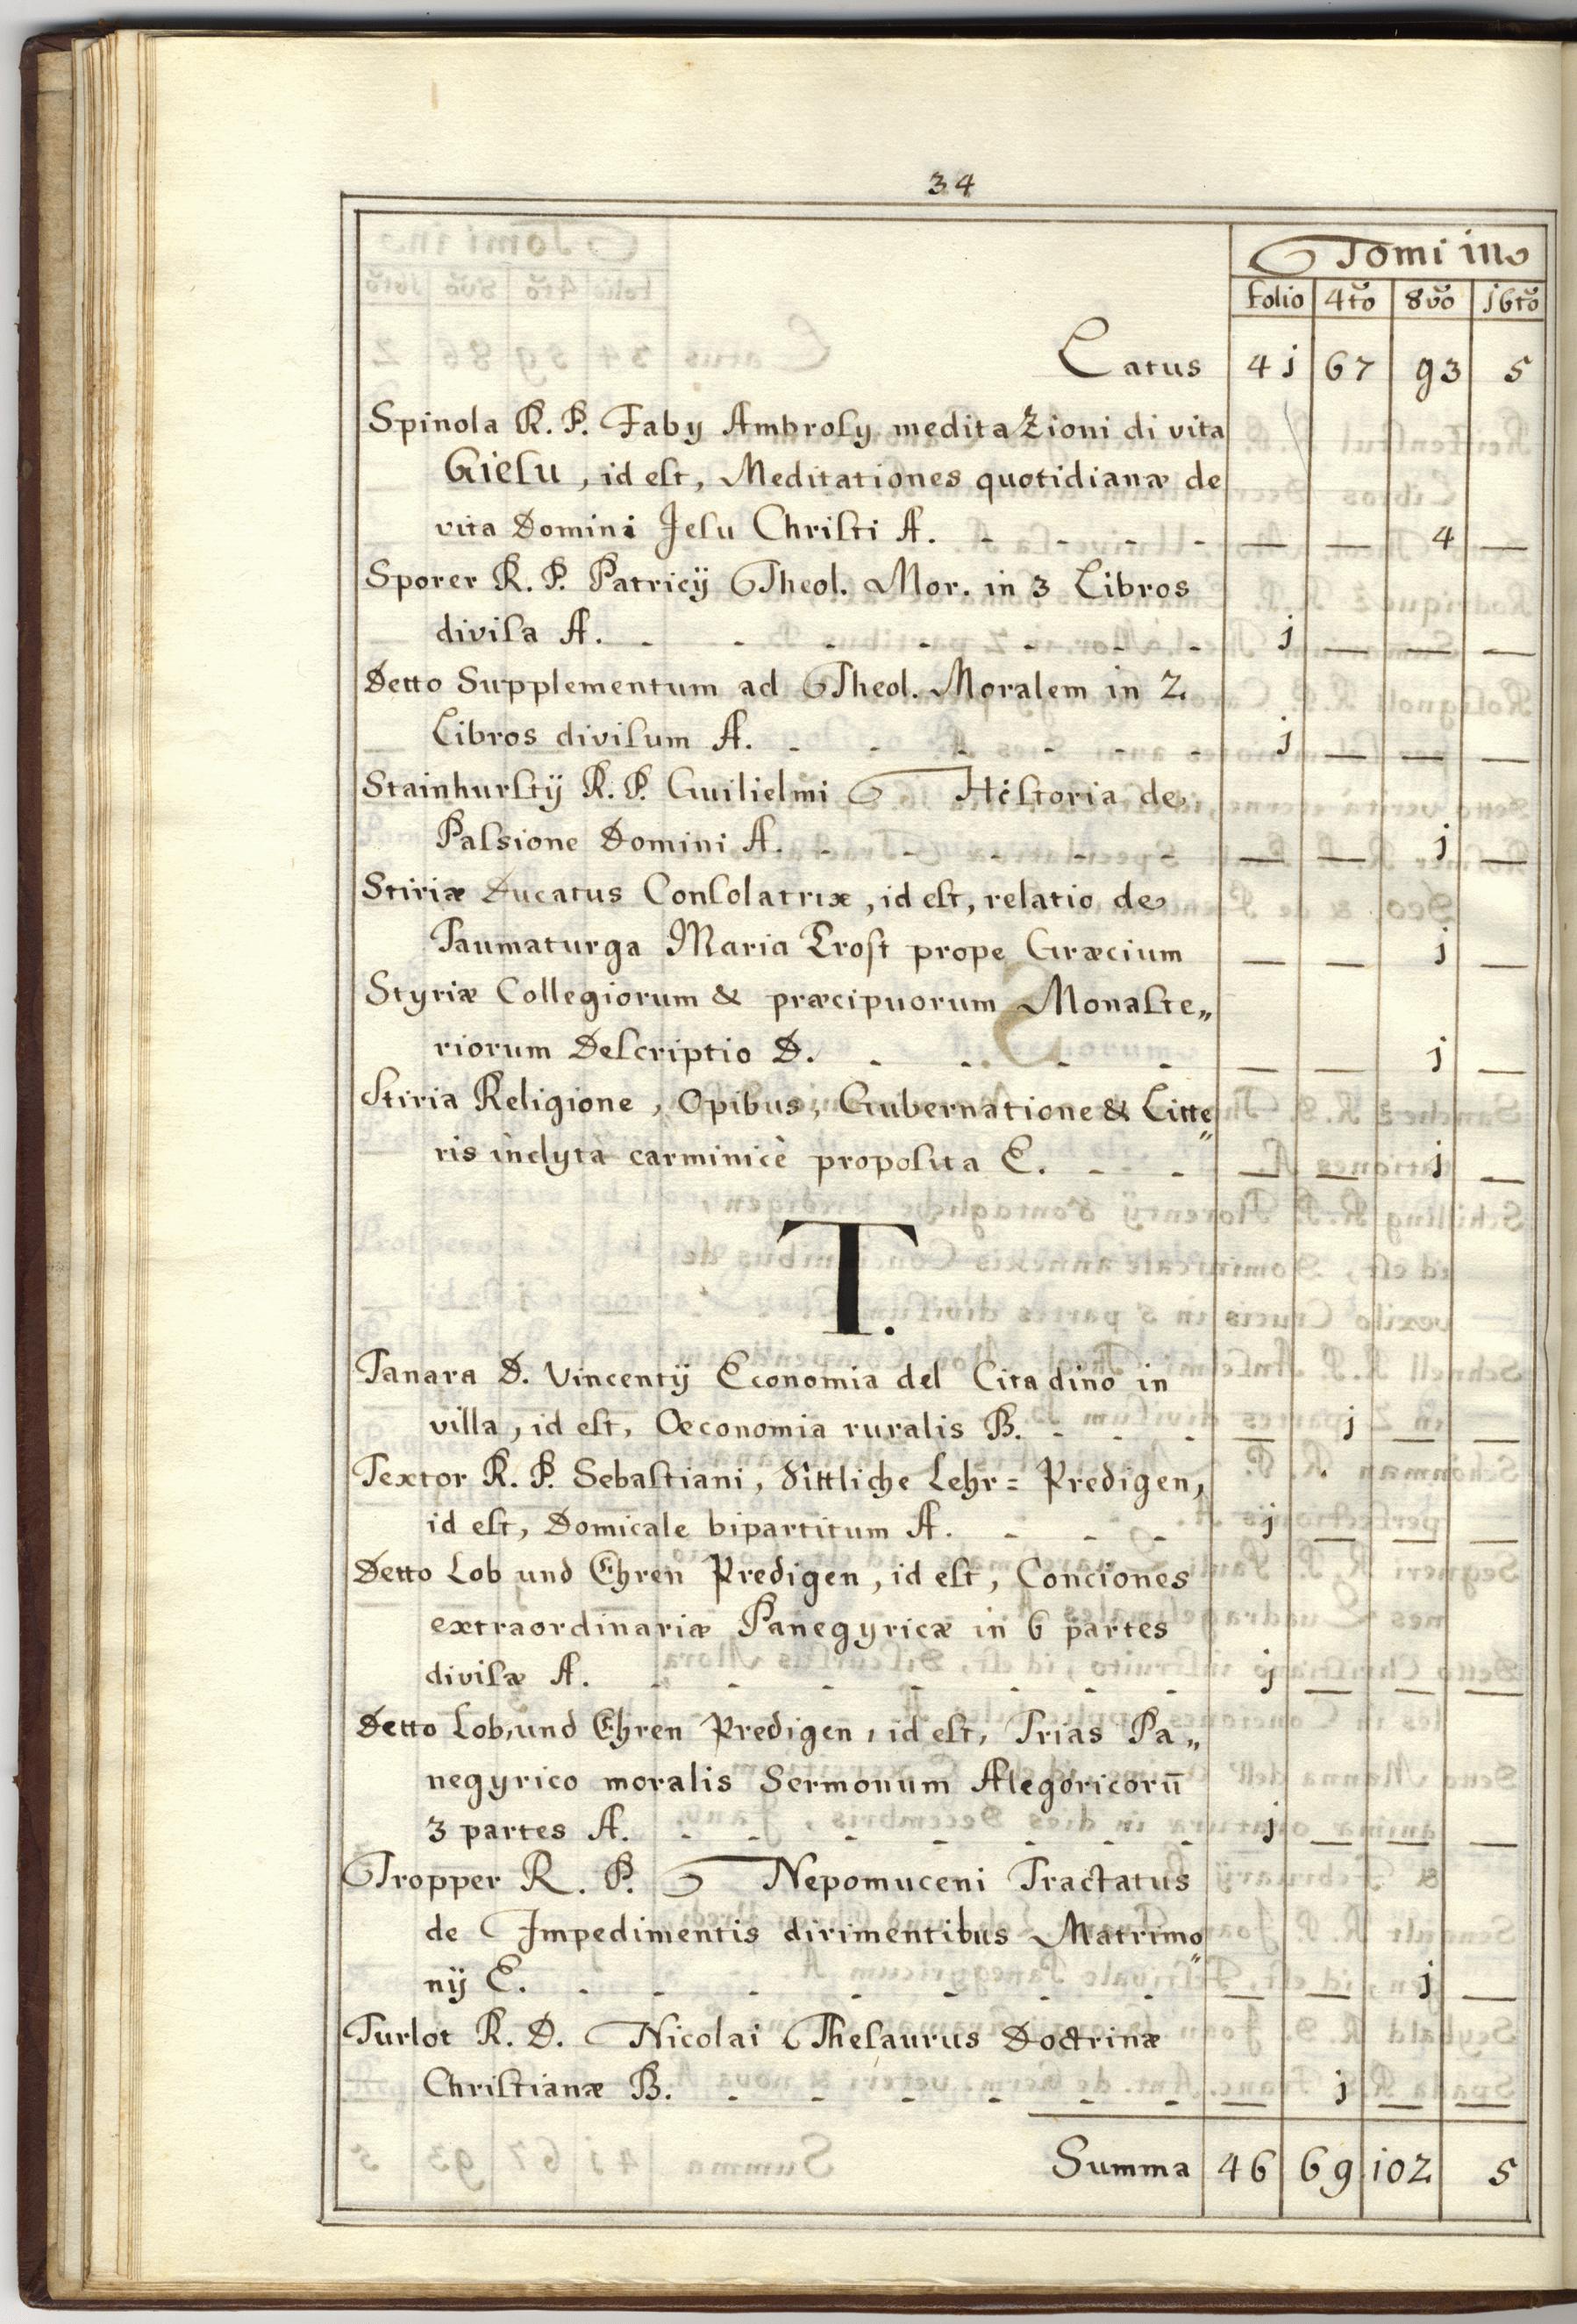 34
Tomi in
folio 4to 8vo j6to
Latus 4j 67 93 5
Spinola R. P. Faby Ambrosy meditazioni di vita
Giesu, id est, Meditationes quotidianæ de
vita Domini Jesu Christi A. - - - - — — 4 —
Sporer R. P. Patricij Theol. Mor. in 3 Libros
divisa A. - - - - - - - j — — —
Detto Supplementum ad Theol. Moralem in 2
Libros divisum A. - - - - - - j — — —
Stainhurstij R. P. Guilielmi Historia de
Passione Domini A. - - - - - — — j —
Stiriæ Ducatus Consolatrix, id est, relatio de
Taumaturga Maria Trost prope Græcium — — j —
Styriæ Collegiorum & præcipuorum Monaste„
riorum Descriptio D. - - - - — — j —
Stiria Religione, Opibus, Gubernatione & Litte„
ris inclyta carminicè proposita E. - - - — — j —
T.
Tanara D. Vincentij Economia del Citadino in
villa, id est, Oeconomia ruralis B. - - - — j — —
Textor R. P. Sebastiani, Sittliche Lehr= Predigen,
id est, Domicale bipartitum A. - - - j — — —
Detto Lob und Ehren Predigen, id est, Conciones
extraordinariæ Panegyricæ in 6 partes
divisæ A. - - - - - - - j — — —
Detto Lob, und Ehren Predigen, id est, Trias Pa„
negyrico moralis Sermonum Alegoricorū
3 partes A. - - - - - - - j — — —
Tropper R. P. Nepomuceni Tractatus
de Impedimentis dirimentibus Matrimo„
nij E. - - - - - - - — — j —
Turlot R. D. Nicolai Thesaurus Doctrinæ
Christianæ B. - - - - - - — j — —
Summa 46 69 j02 5